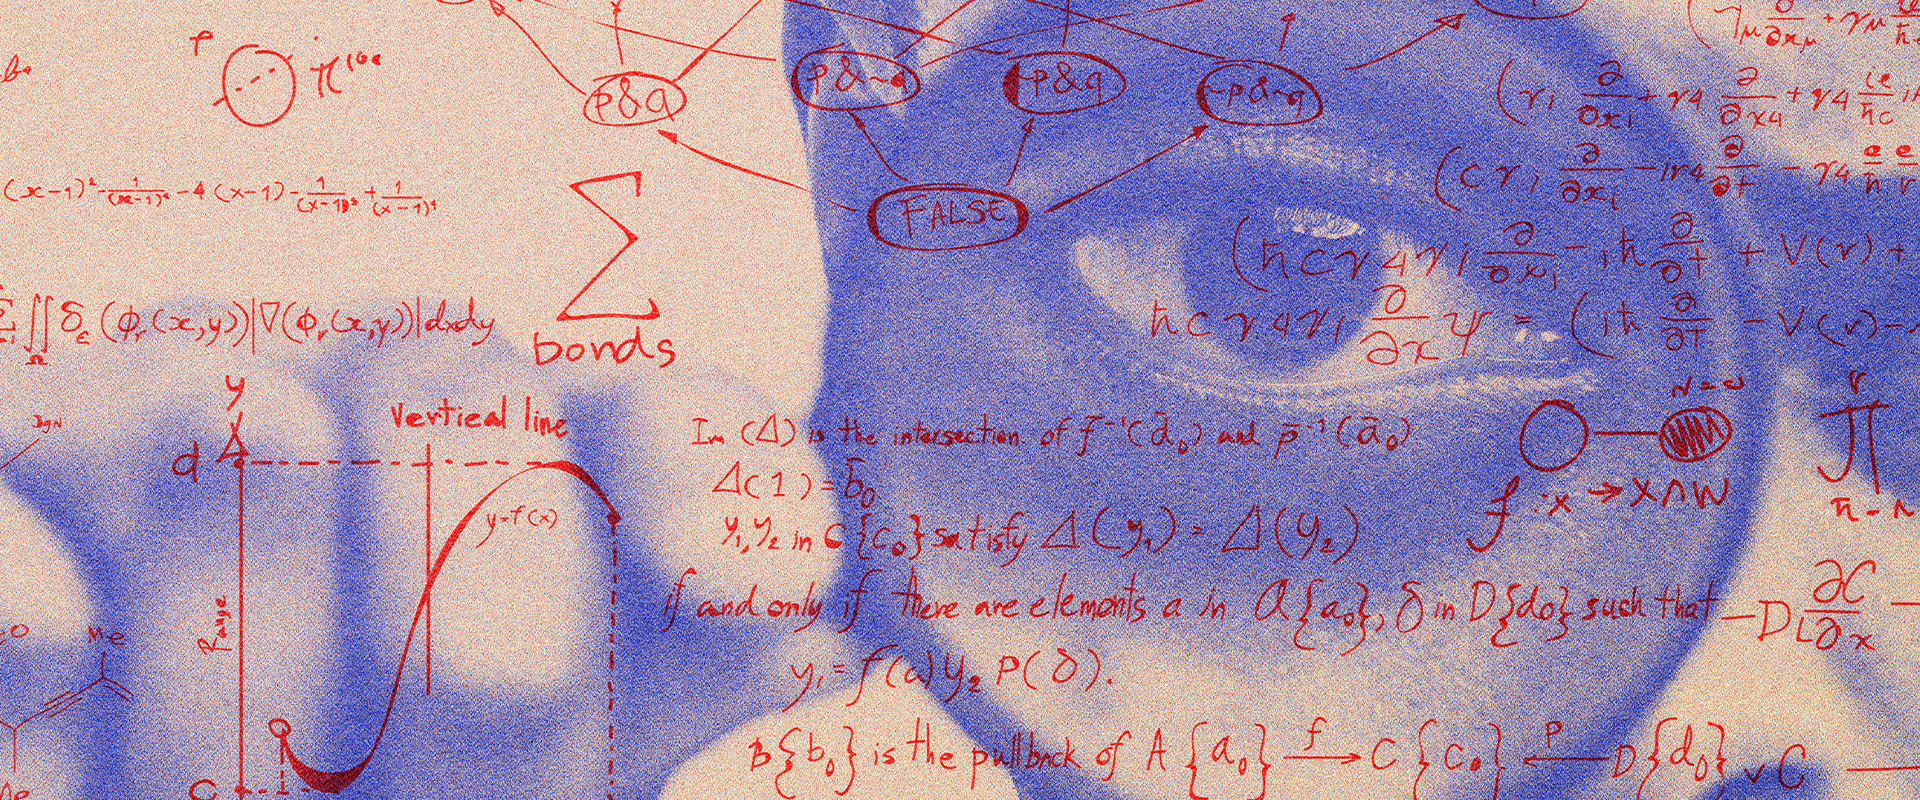 π
p&q
p&~q
~p&q
~p&~q
FALSE
(x-1)² - 1/(x-1)⁴ - 4(x-1) - 1/(x-1)³ + 1/(x-1)⁴
Σ
bonds
∬ δε (ϕr(x,y))|∇(ϕr(x,y)|dxdy
Ω
(γi ∂/∂xi + γ4 ∂/∂x4 + γ4 ie/ħc
(cγi ∂/∂xi - iγ4 ∂/∂t - γ4 e/ħ
(ħcγ4γi ∂/∂xi - iħ ∂/∂t + V(r) +
ħcγ4γi ∂/∂x ψ = (iħ ∂/∂t - V(r) -
y
d
Vertical line
y=f(x)
Range
C
Me
Im (Δ) is the intersection of f⁻¹(d̄₀) and p̄⁻¹(ā₀)
Δ(1) = b̄₀
y₁,y₂ in C{c₀} satisfy Δ(y₁) = Δ(y₂)
if and only if there are elements a in A{a₀}, δ in D{d₀} such that
y₁ = f(a) y₂ P(δ).
B{b₀} is the pullback of A {a₀} f→ C {c₀} ←P D{d₀}
f:x → X∩W
π
-D ∂C/∂x -
C